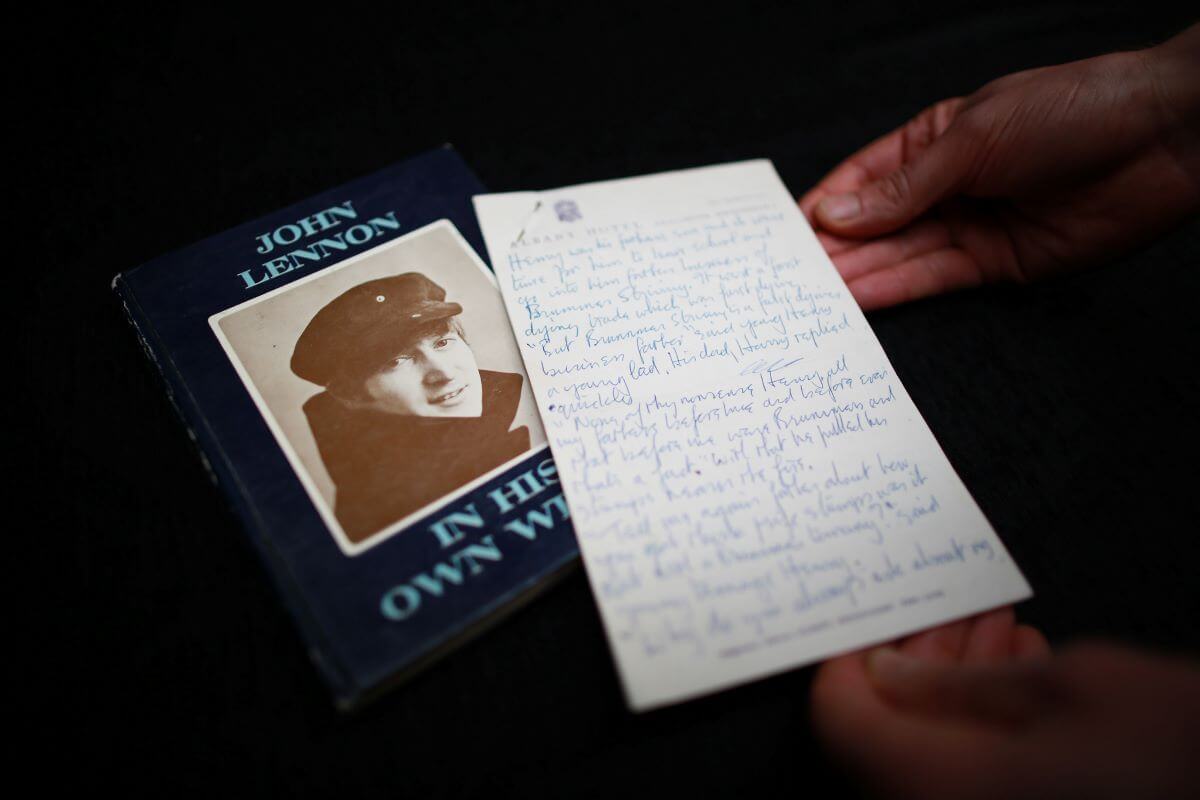 JOHN
LENNON
IN HIS
OWN WRI
ALBANY HOTEL
Henry was his fathers son and it were
time for him to leave school and
go into him fathers business of
Brummer Striving. It was a fast
dying trade which was fast dying.
"But Brummer Striving is a fast dying
business father" said young Henry
a young lad. His dad, Harry replied
quickly
"None of thy nonsense Henry all
my fathers before me and before even
that before me were Brummers and
thats a fact" with that he pulled his
stumps nearer the fire.
"Tell me again father about how
you got prize stumps was it
not a Brummer Striving?" said
young Henry.
"Why do you always ask about my